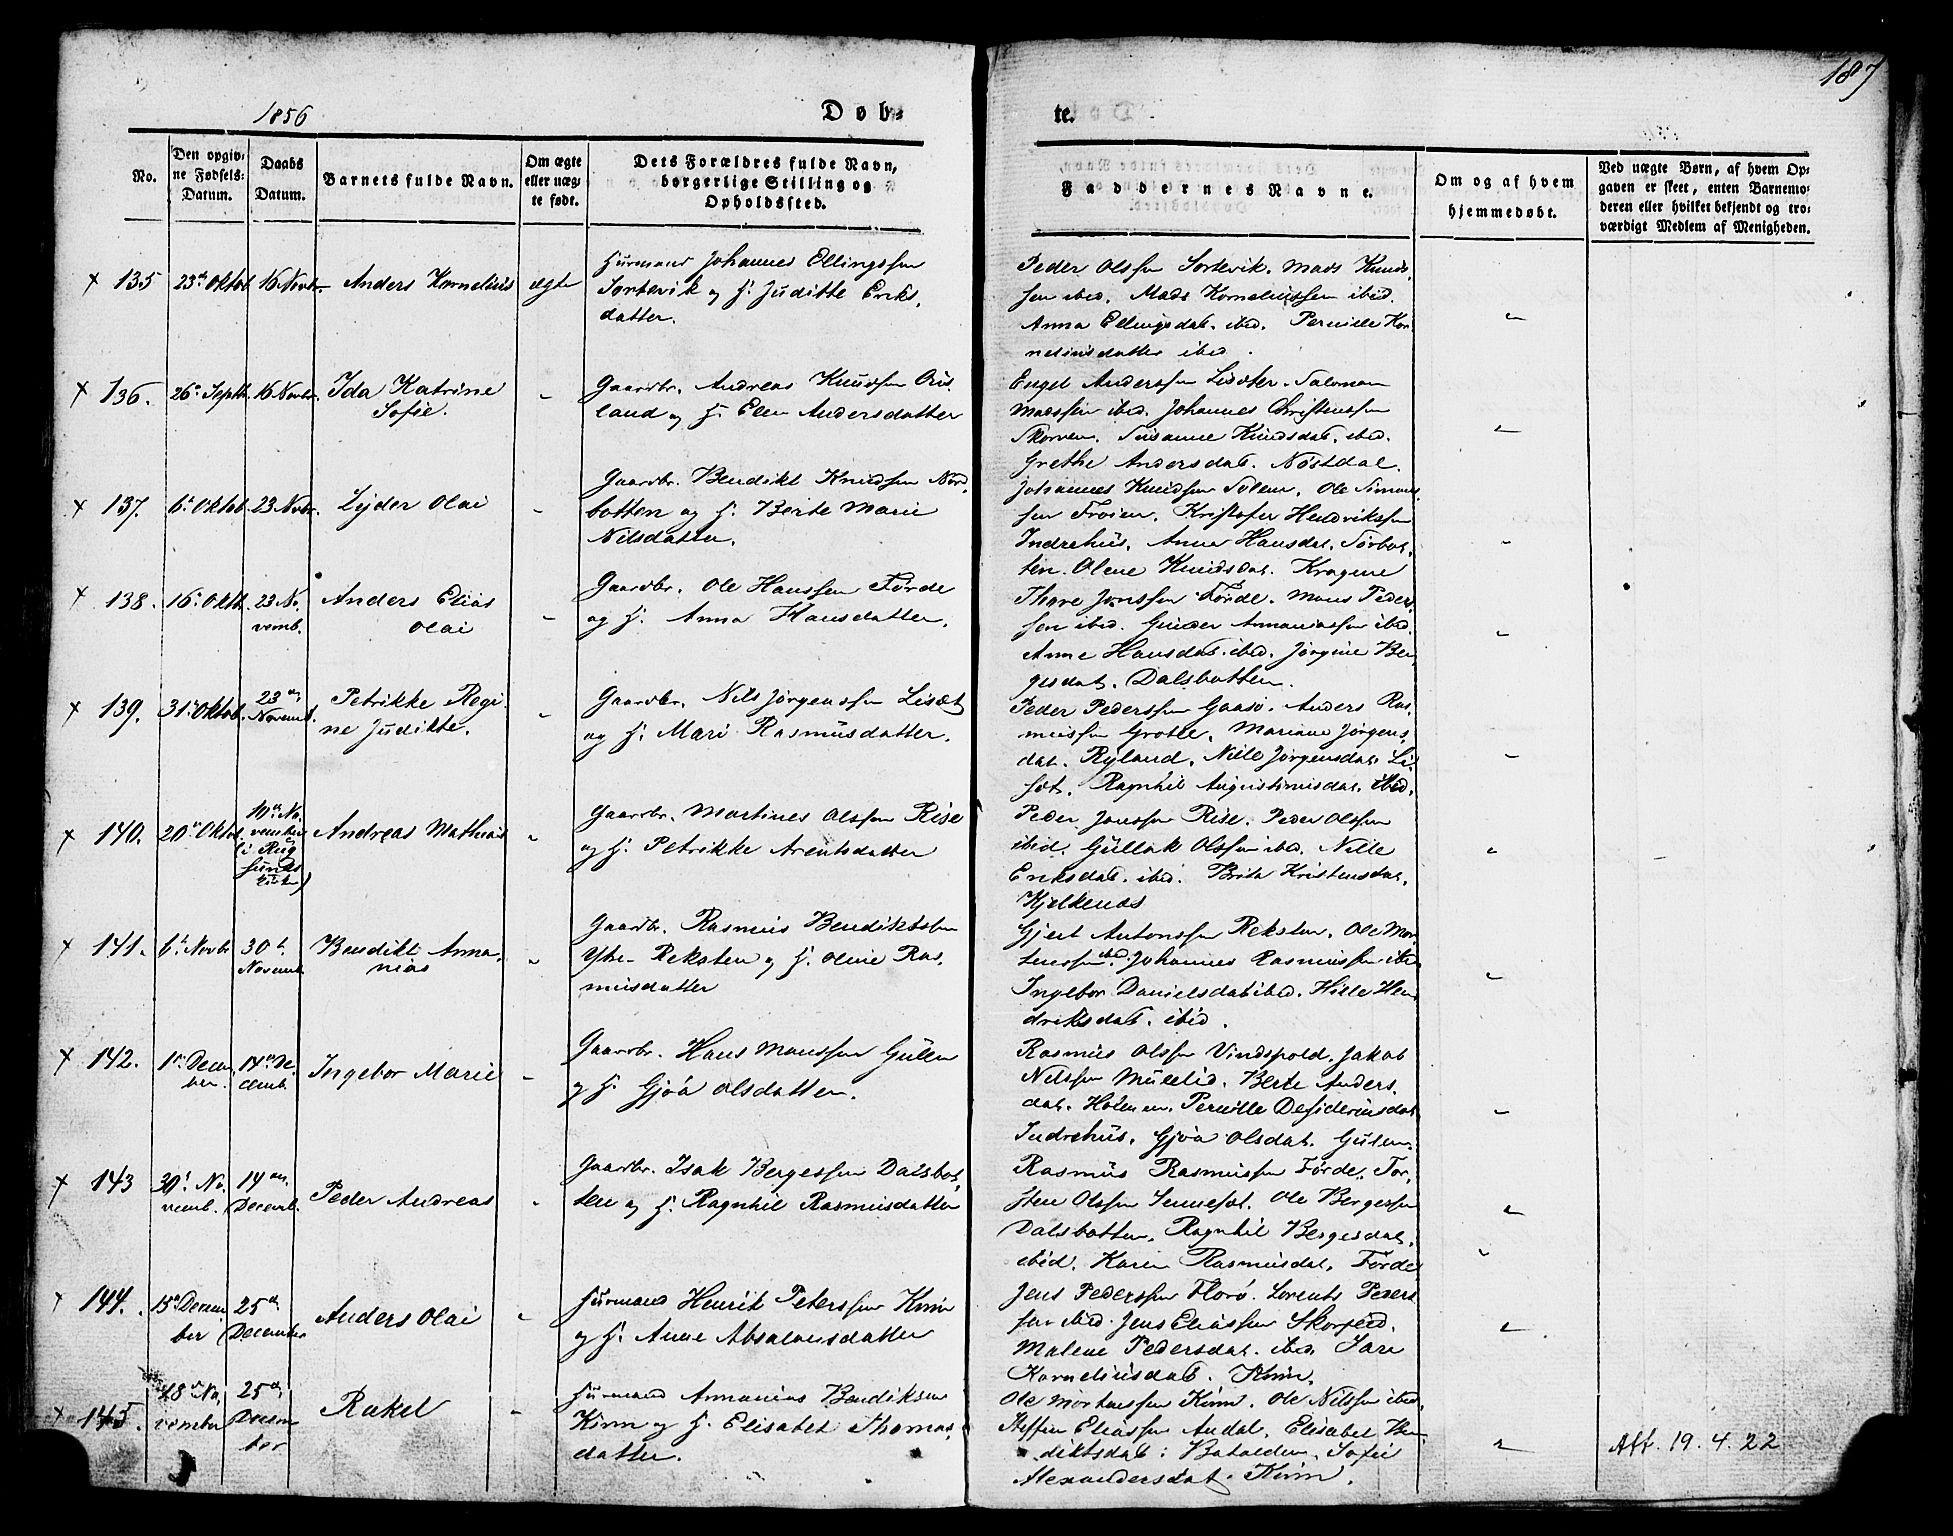 187
1856
Døb-
te.
No.
Den opgiv-
ne Fødsels-
Datum.
Daabs
Datum.
Barnets fulde Navn.
Om ægte
eller uæg-
te født.
Dets Forældres fulde Navn,
borgerlige Stilling og
Opholdssted.
Faddernes Navne.
Om og af hvem
hjemmedøbt.
Ved uægte Børn, af hvem Op-
gaven er skeet, enten Barnemo-
deren eller hvilket bekjendt og tro-
værdigt Medlem af Menigheden.
135 23de Oktob. 16 Novbr. Anders Kornelius ægte
Huusmand Johannes Ellingssen
Sørtevik og H. Juditte Eriks
datter.
Peder Olssen Sortevik. Mads Knuds,
sen ibid. Mads Kornelissen ibid.
Anna Ellingsdat. ibid. Pernille Kor
neliusdatter ibid.
136. 26. Septb. 16 Novbr. Ida Katrine
Sofie.
Gaardbr. Andreas Knudsen
land og H. Elen Andersdatter
Engel Anderssen Lisæter. Salomon
Madssen ibid. Johannes Christenssen
Skorven. Susanne Knudsdat. ibid.
Grethe Andersdat. Nøstdal.
137. 6. Oktob. 23 Novbr. Lyder Olai
Gaardbr. Bendikt Knudsen Nord,
botten og H. Berte Marie
Nilsdatter.
Johannes Knudsen Solem. Ole Simons
sen Frøien. Kristofer Hendrikssen
Indrehus. Anna Hansdat. Sørbot,
ten. Olene Knudsdat. Kragene
138. 16. Oktb. 23 No,
vemb.
Anders Elias
Olai
Gaardbr. Ole Hanssen Førde
og H. Anna Hansdatter.
Thore Jonssen Førde. Mons Peder,
sen ibid. Ananiassen ibid.
Anne Hansdat. ibid. Jørgine Ber
gesdat. Dalsbotten.
139. 31. Oktob. 23de
Novemb.
Petrikke Regi
ne Juditte.
Gaardbr. Nils Jørgenssen Lisæt
og H. Mari Rasmusdatter.
Peder Pederssen Gaasø. Anders Ras,
mussen Grotle. Mariane Jørgens,
dat. Ryland. Nille Jørgensdat. Li
sæt. Ragnhil Augustinusdat. ibid.
140. 20de Oktob. 10de No,
vember
(i Rug
sunds
Kirke)
Andreas Mathias
Gaardbr. Martines Olssen Rise
og H. Petrikke Arentsdatter
Peder Jonssen Rise. Peder Olssen
ibid. Gullak Olssen ibid. Nille
Eriksdat. ibid. Brita Kristensdat.
Kjelkenæs
141. 6te Novbr 30te
Novemb.
Bendikt Anna,
nias
Gaardbr. Rasmus Bendiktssen
Ytre Reksten og H. Oline Ras,
musdatter
Gjert Antonssen Reksten. Ole Mor
tenssen ibid. Johannes Rasmussen ibid
Ingebor Danielsdat ibid. Hille Hen
driksdat. ibid.
142. 1ste Decem
ber.
14de De,
cemb.
Ingebor Marie
Gaardbr. Hans Monssen Gullen
og H. Gjøa Olsdatter.
Rasmus Olssen Vindspold. Jakob
Nilssen Mullelid. Berte Anders,
dat. Holmen. Pernille Desideriusdat
Indrehus. Gjøa Olsdat. Gulen.
143 30te No,
vemb.
14de
Decemb.
Peder Andreas
Gaardbr. Isak Bergessen Dalsbot,
ten og H. Ragnhil Rasmusdatter
Rasmus Rasmussen Førde. Tor,
sten Olssen Sennesæt. Ole Bergessen
Dalsbotten. Ragnhil Bergesdat.
ibid. Karen Rasmusdat. Førde
144. 15de Decem
ber
25de
December
Anders Olai
Huusmand Henrik Peterssen Kinn
og H. Anne Absalonsdatter
Jens Pederssen Florø. Lorents Peders
sen ibid. Jens Eliassen Skorpeid.
Malene Pedersdat. ibid. Sare
Korneliusdat. Kinn.
145. 18de No,
vember
25de
Decem
ber
Rakel
Huusmand Annanias Bendiksen
Kinn og H. Elisabet Thomas,
datter.
Ole Mortenssen Kinn. Ole Nilssen ibid.
Steffen Eliassen Andal. Elisabet Ben,
diktsdat. Batalden. Sofie
Alexandersdat. Kinn.
Att. 19.4.22